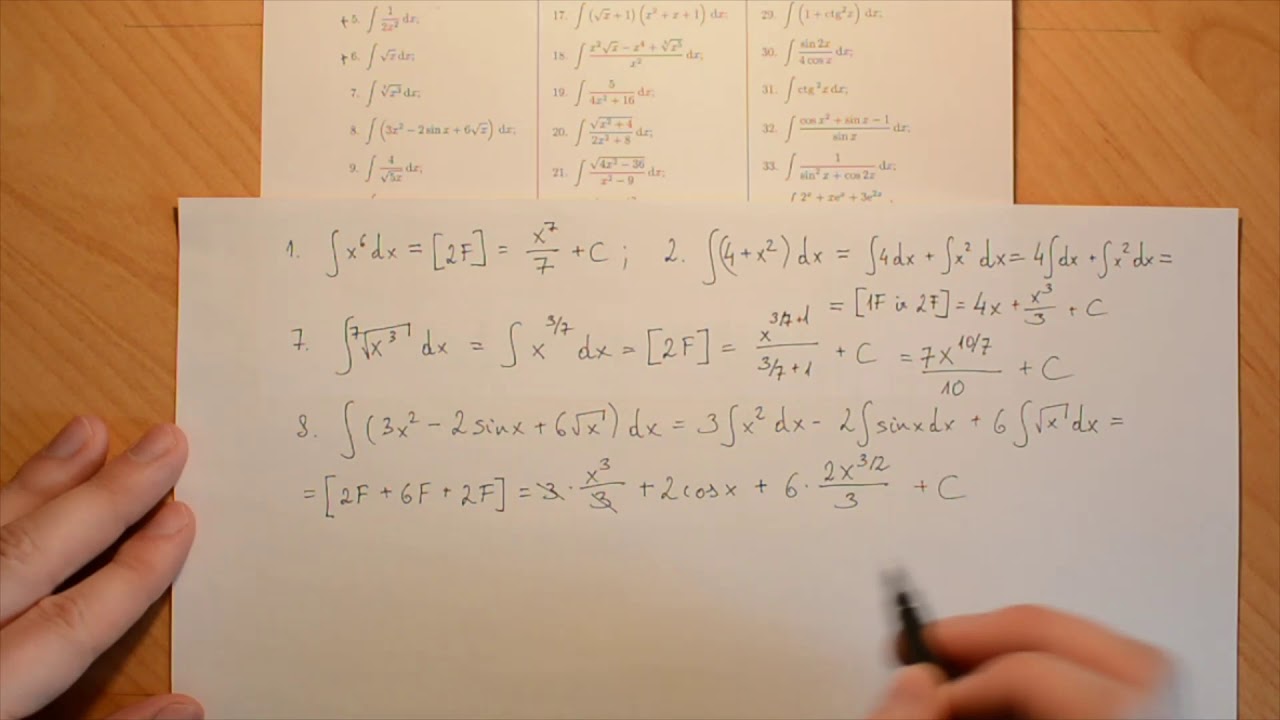 5. ∫ 1/(2x²) dx;
6. ∫ √x dx;
7. ∫ ⁷√x³ dx;
8. ∫ (3x² − 2 sin x + 6√x) dx;
9. ∫ 4/√(5x) dx;
17. ∫ (√x + 1) (x² + x + 1) dx;
18.
19. ∫ 5/(4x² + 16) dx;
20. ∫ √(x² + 4)/(2x² + 8) dx;
21. ∫ √(4x² − 36)/(x² − 9) dx;
29. ∫ (1 + ctg² x) dx;
30. ∫ sin 2x/(4 cos x) dx;
31. ∫ ctg² x dx;
32. ∫ (cos x² + sin x − 1)/sin x dx;
33. ∫ 1/(sin² x + cos 2x) dx;
2ˣ + xeˣ + 3e²ˣ
1. ∫ x⁶ dx = [2F] = x⁷/7 + C ; 2. ∫(4 + x²) dx = ∫4dx + ∫x² dx = 4∫dx + ∫x² dx =
= [1F in 2F] = 4x + x³/3 + C
7. ∫ ⁷√x³ dx = ∫ x^(3/7) dx = [2F] = x^(3/7+1)/(3/7+1) + C = 7x^(10/7)/10 + C
8. ∫ (3x² − 2 sinx + 6√x) dx = 3∫x² dx − 2∫sinx dx + 6∫√x dx =
= [2F + 6F + 2F] = 3 · x³/3 + 2cosx + 6 · 2x^(3/2)/3 + C